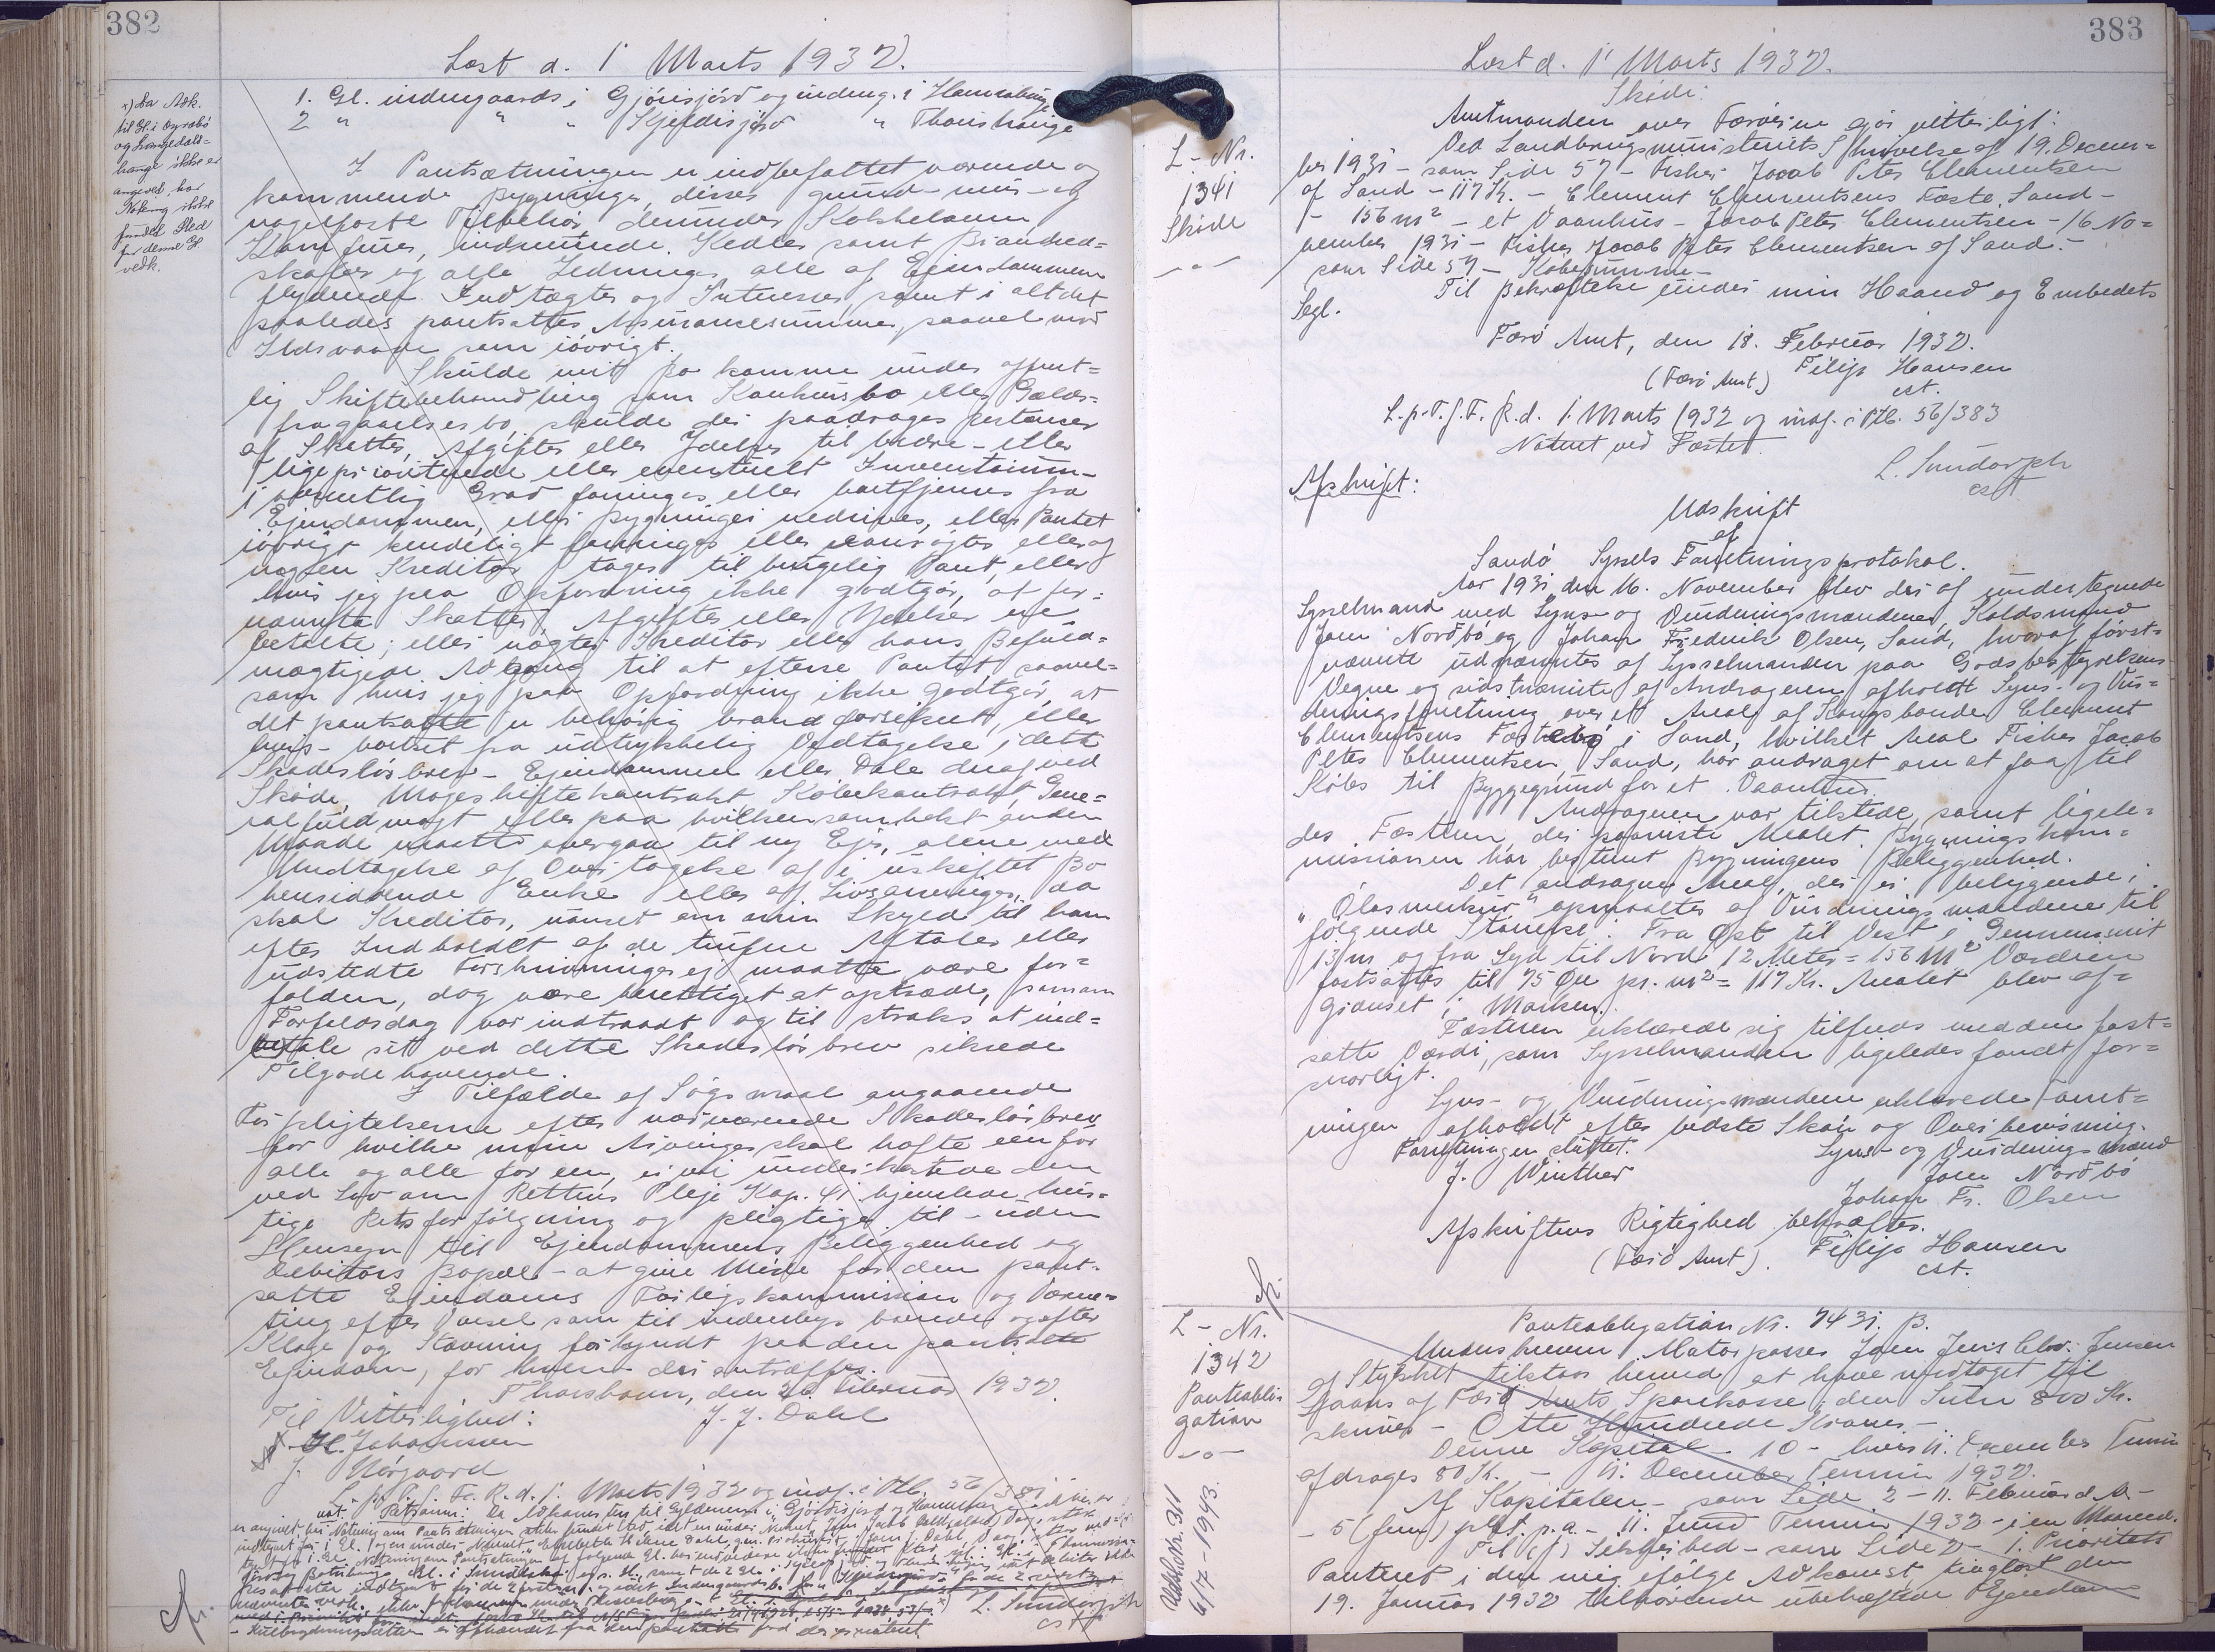 382
Læst d. 1' Marts 1932.
x) Da Adk.
til Gl. i
og Langedals=
hauge ikke er
angivet har
Notering ikke
fundet Sted
for denne Gl
vedk.
1. Gl. indengaards i Gjónisjörd og indeng. i Hamrahauge
2 " " " Kjeldisjörd " Thorshauge
I Pantsætningen er indbefattet værende og
kommende Bygninger, disses grund- mur- og
nagelfaste Tilbehör derunder Kakkelovne,
Komfurer, indmurede Kedler samt Brandred=
skaber og alle Ledninger, alle af Ejendommen
flydende Indtægter og Interesser, samt i alt det
saaledes pantsattes Assurancesummer, saavel mod
Ildsvaade som iövrigt.
Skulde mit Bo komme under offent=
lig Skiftebehandling som Konkursbo eller Gælds=
fragaaelsesbo, skulde der paadrages Restancer
af Skatter, Afgifter eller Ydelser til bedre- eller
ligeprioriterede eller eventuelt Inventarium
i væsentlig Grad forringes eller bortfjernes fra
Ejendommen, eller Bygninger nedrives, eller Pantet
iövrigt kendeligt forringes eller vanrögtes eller af
nogen Kreditor tages til brugelig Pant, eller
hvis jeg paa Opfordring ikke godtgör, at for=
nævnte Skatter, Afgifter eller Ydelser ere
betalte; eller nægter Kreditor eller hans Befuld=
mægtigede Adgang til at efterse Pantet, saavel=
som hvis jeg paa Opfordring ikke godtgör, at
det pantsatte er behörig brandforsikret, eller
hvis - bortset fra udtrykkelig Undtagelse i dette
Skadeslösbrev - Ejendommen eller Dele deraf ved
Sköde, Mageskiftekontrakt, Köbekontrakt, Gene=
ralfuldmagt eller paa hvilkensomhelst anden
Maade maatte overgaa til ny Ejer, alene med
Undtagelse af Overtagelse af i uskiftet Bo
hensiddende Enke eller af Livsarvinger, da
skal Kreditor, uanset om min Skyld til ham
efter Indholdet af de trufne Aftaler eller
udstedte Forskrivninger ej maatte være for=
falden, dog være berettiget at optræde, som om
Forfaldsdag var indtraadt og til straks at ind=
tale sit ved dette Skadeslösbrev sikrede
Tilgodehavende.
I Tilfælde af Sögsmaal angaaende
Forpligtelserne efter nærværende Skadeslösbrev
for hvilke mine Arvinger skal hæfte een for
alle og alle for een, er vi underkastede den
ved Lov om Rettens Pleje Kap. 41 hjemlede hur=
tige Retsforfölgning og pligtige til - uden
Hensyn til Ejendommens Beliggenhed og
Debitors Bopæl - at give Möde for den pant-
satte Ejendoms Forligskommission og Værne=
ting efter Varsel som til indenbys boende og efter
Klage og Stævning forkyndt paa den pantsatte
Ejendom, for hvem der antræffes.
Thorshavn, den 26. Februar 1932.
Til Vitterlighed: J. J. Dahl
H. Johannesen
J. Nörgaard
L. p. T. f. F. R. d. 1. Marts 1932 og indf. i Ptb. 56/381
L. Sundorph
cst.
383
Læst d. 1' Marts 1932.
L - Nr.
1341
Sköde
Sköde:
Amtmanden over Færöerne gör vitterligt:
Ved Landbrugsministeriets Skrivelse af 19. Decem=
ber 1931 - som Side 57 - Fisker Jacob Peter Clementsen
af Sand - 117 Kr. - Clement Clementsens Fæste, Sand -
- 156 m² - et Vaanhus - Jacob Peter Clementsen - 16 No=
vember 1931 - Fisker Jacob Peter Clementsen af Sand. -
som Side 57 - Köbesumme -
Til Bekræftelse under min Haand og Embedets
Segl.
Færö Amt, den 18. Februar 1932.
(Færö Amt) Filip Hansen
cst.
L. p. T. f. F. R. d. 1. Marts 1932 og indf. i Ptb. 56/383
Noteret ved Fæstet.
L. Sundorph
cst
Afskrift:
Udskrift
af
Sandö Syssels Forretningsprotokol.
Aar 1931 den 16. November blev der af undertegnede
Sysselmand med Syns- og Vurderingsmændene, Koldsmand
Joen Nordbö og Johan Fredrik Olsen, Sand, hvoraf först=
nævnte udnævntes af Sysselmanden paa Godsbestyrelsens
Vegne og sidstnævnte af Andrageren afholdt Syns- og Vur=
deringsforretning over et Areal af Kongsbonde Clement
Clementsens Fæstebö i Sand, hvilket Areal Fisker Jacob
Peter Clementsen, Sand, har andraget om at faa til
Köbs til Byggegrund for et Vaanhus.
Andrageren var tilstede samt ligele=
des Fæsteren, der paaviste Arealet. Bygningskom=
missionen har bestemt Bygningens Beliggenhed.
Det andragne Areal, der er beliggende i
"Ólasmerkur" opmaaltes af Vurderingsmændene til
fölgende Störrelse: Fra Öst til Vest i Gennemsnit
13 m og fra Syd til Nord 12 Meter = 156 m² Værdien
fastsattes til 75 Öre pr. m² = 117 Kr. Arealet blev af=
grænset i Marken.
Fæsteren erklærede sig tilfreds med den fast=
satte Værdi, som Sysselmanden ligeledes fandt for=
svarligt.
Syns- og Vurderingsmændene erklærede Forret=
ningen afholdt efter bedste Skön og Overbevisning.
Forretningen sluttet. Syns- og Vurderingsmænd
J. Winther Joen Nordbö
Johan Fr. Olsen
Afskriftens Rigtighed bekræftes.
(Færö Amt). Filip Hansen
cst.
L - Nr.
1342
Panteobli
gation
Udslettet. 311
6/7-1943.
Panteobligation Nr. 7431. B.
Underskrevne Matorpasser Joen Jens Chr. Jensen
af Stykket tilstaar herved at have modtaget til
Laans af Færö Amts Sparekasse den Sum 800 Kr.
skriver - Otte Hundrede Kroner. -
Denne Kapital - 10 - hvers 11. December Termin
afdrages 80 Kr. - 11. December Termin 1932.
Af Kapitalen - som Side 2 - 11. Februar d. A -
- 5 (fem) pct. p. a. - 11. Juni Termin 1932 - i en Maaned.
Til (f) Sikkerhed - som Side 2 - 1. Prioritets
Panteret i den mig ifölge Adkomst tinglæst den
19. Januar 1932 tilhörende ubehæftede Ejendom